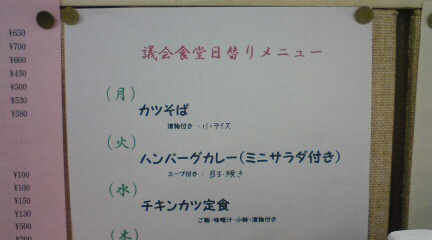 ¥650
¥700
¥600
¥450
¥500
¥530
¥580
¥100
¥100
¥150
¥130
¥500
議会食堂日替りメニュー
(月)
カツそば
漬物付き・小ライス
(火)
ハンバーグカレー(ミニサラダ付き)
スープ付き・目玉焼き
(水)
チキンカツ定食
ご飯・味噌汁・小鉢・漬物付き